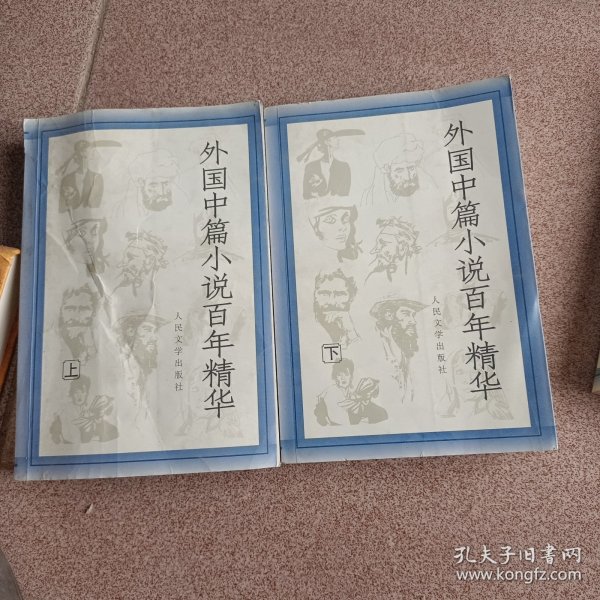 外国中篇小说百年精华
人民文学出版社
上
外国中篇小说百年精华
人民文学出版社
下
孔夫子旧书网
www.kongfz.com